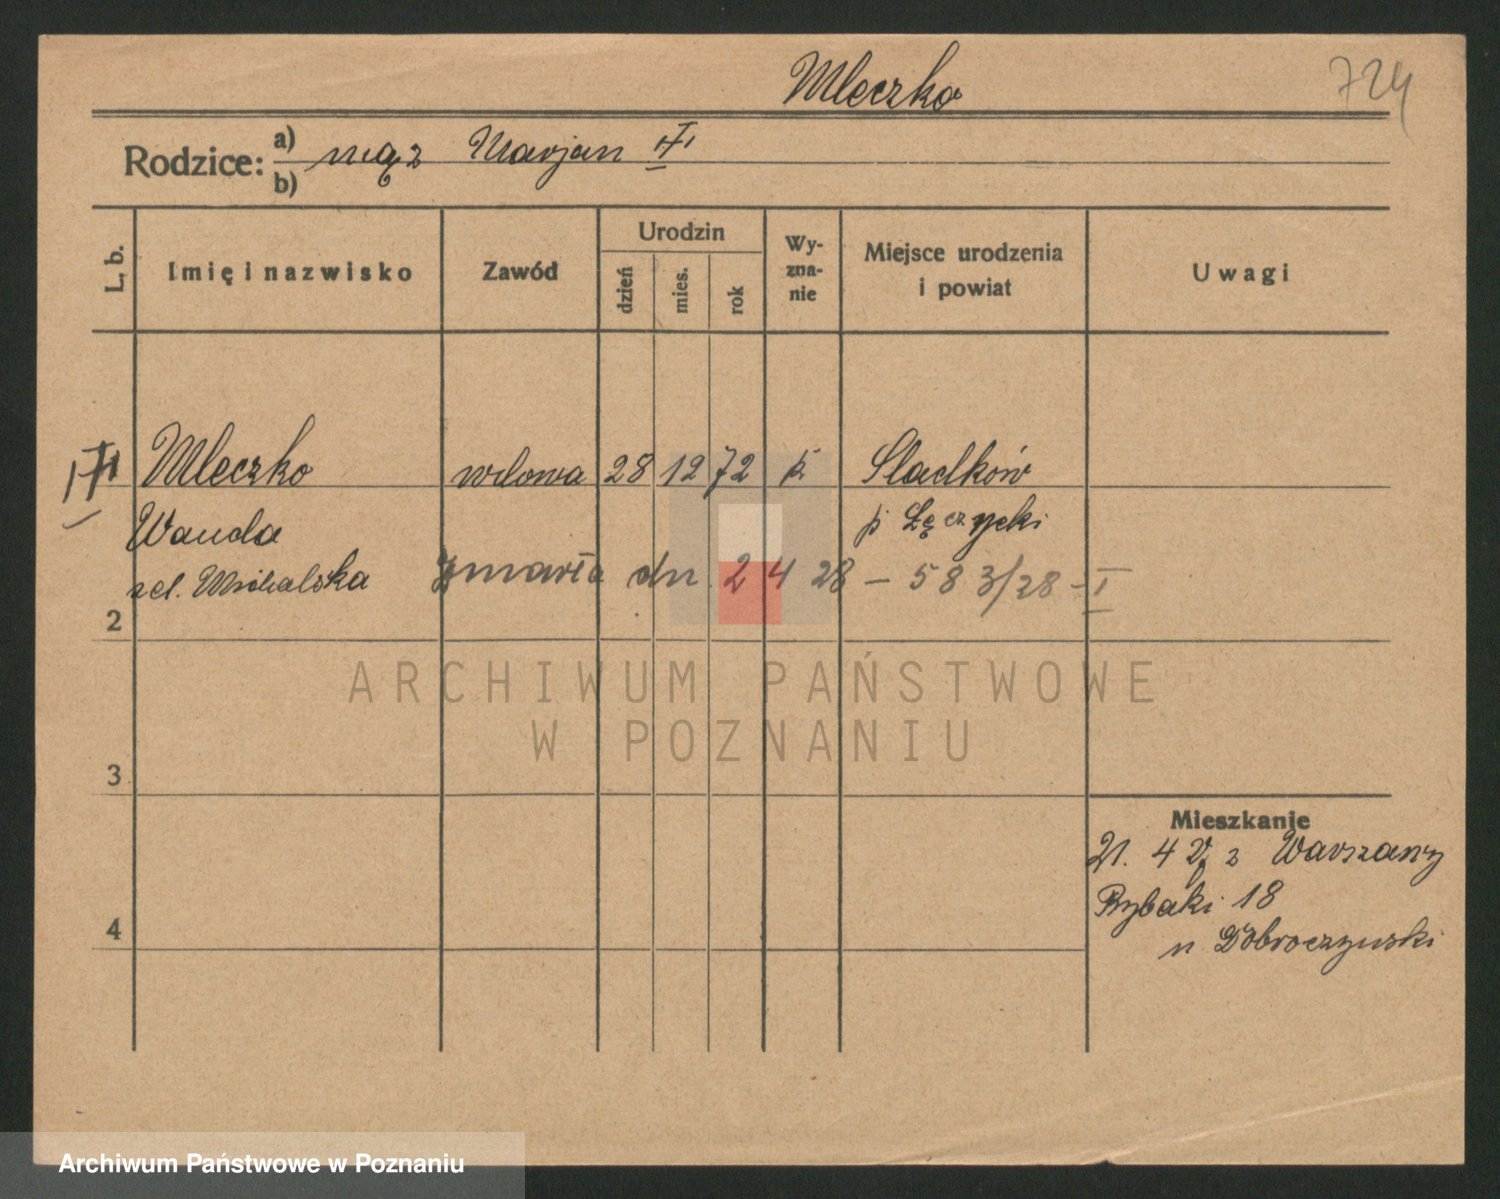 Mleczko
724
Rodzice: a) mąż Marjan
b)
L. b.
Imię i nazwisko
Zawód
Urodzin
dzień
mies.
rok
Wy-
zna-
nie
Miejsce urodzenia
i powiat
Uwagi
Mleczko wdowa 28 12 72 k Sladków
Wanda p Łęczycki
zd. Michalska Zmarła dn. 2 4 28 – 583/28 – I
2
ARCHIWUM PAŃSTWOWE
W POZNANIU
3
Mieszkanie
21. 4 z Warszawy
Rybaki 18
4
u Dobroczyński
Archiwum Państwowe w Poznaniu